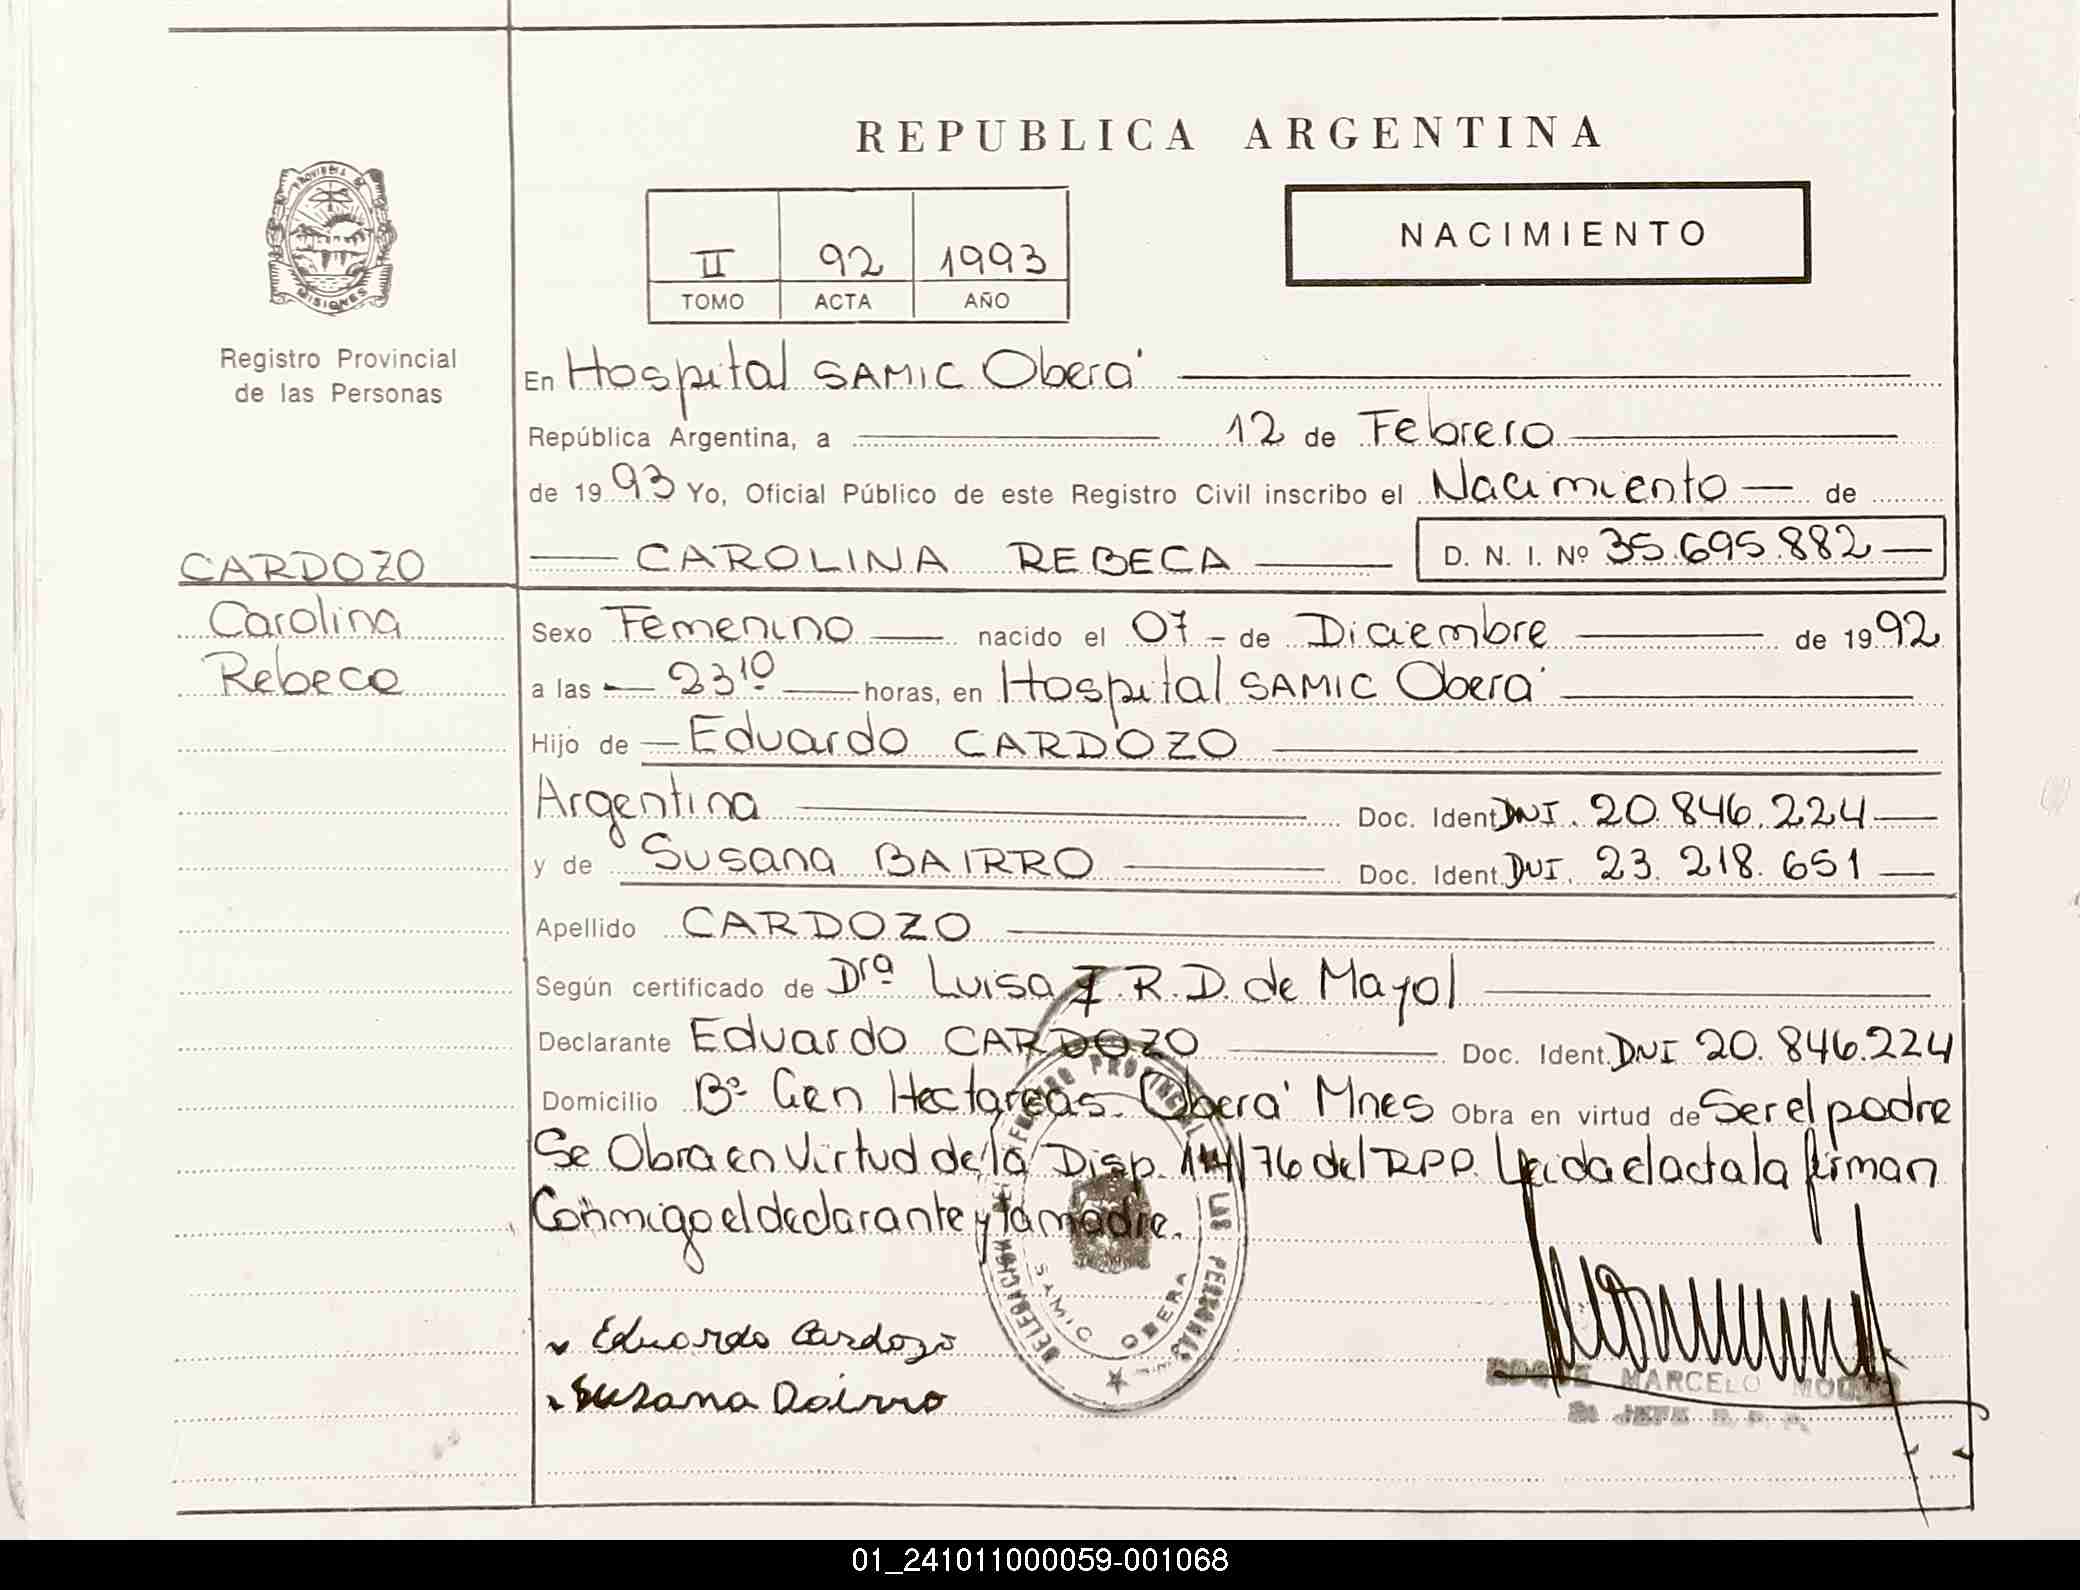 REPUBLICA ARGENTINA
PROVINCIA DE
MISIONES
Registro Provincial
de las Personas
II 92 1993
TOMO ACTA AÑO
NACIMIENTO
En Hospital SAMIC Oberá
República Argentina, a 12 de Febrero
de 1993 Yo, Oficial Público de este Registro Civil inscribo el Nacimiento de
CARDOZO
Carolina
Rebeca
CAROLINA REBECA D. N. I. Nº 35.695.882
Sexo Femenino nacido el 07 de Diciembre de 1992
a las 23 10 horas, en Hospital SAMIC Oberá
Hijo de Eduardo CARDOZO
Argentina Doc. Ident. DNI. 20.846.224
y de Susana BAIRRO Doc. Ident. DNI. 23.218.651
Apellido CARDOZO
Según certificado de Drª Luisa R.D. de Mayol
Declarante Eduardo CARDOZO Doc. Ident. DNI 20.846.224
Domicilio Bº Cien Hectareas. Oberá Mnes Obra en virtud de Ser el padre
Se Obra en Virtud de la Disp. /76 del RPP. Leida el acta la firman
Conmigo el declarante y la madre.
DELEGACION REGISTRO PROVINCIAL DE LAS PERSONAS
SAMIC OBERA
Eduardo Cardozo
Susana Bairro
ROQUE MARCELO
JEFE R. P. P.
01_241011000059-001068